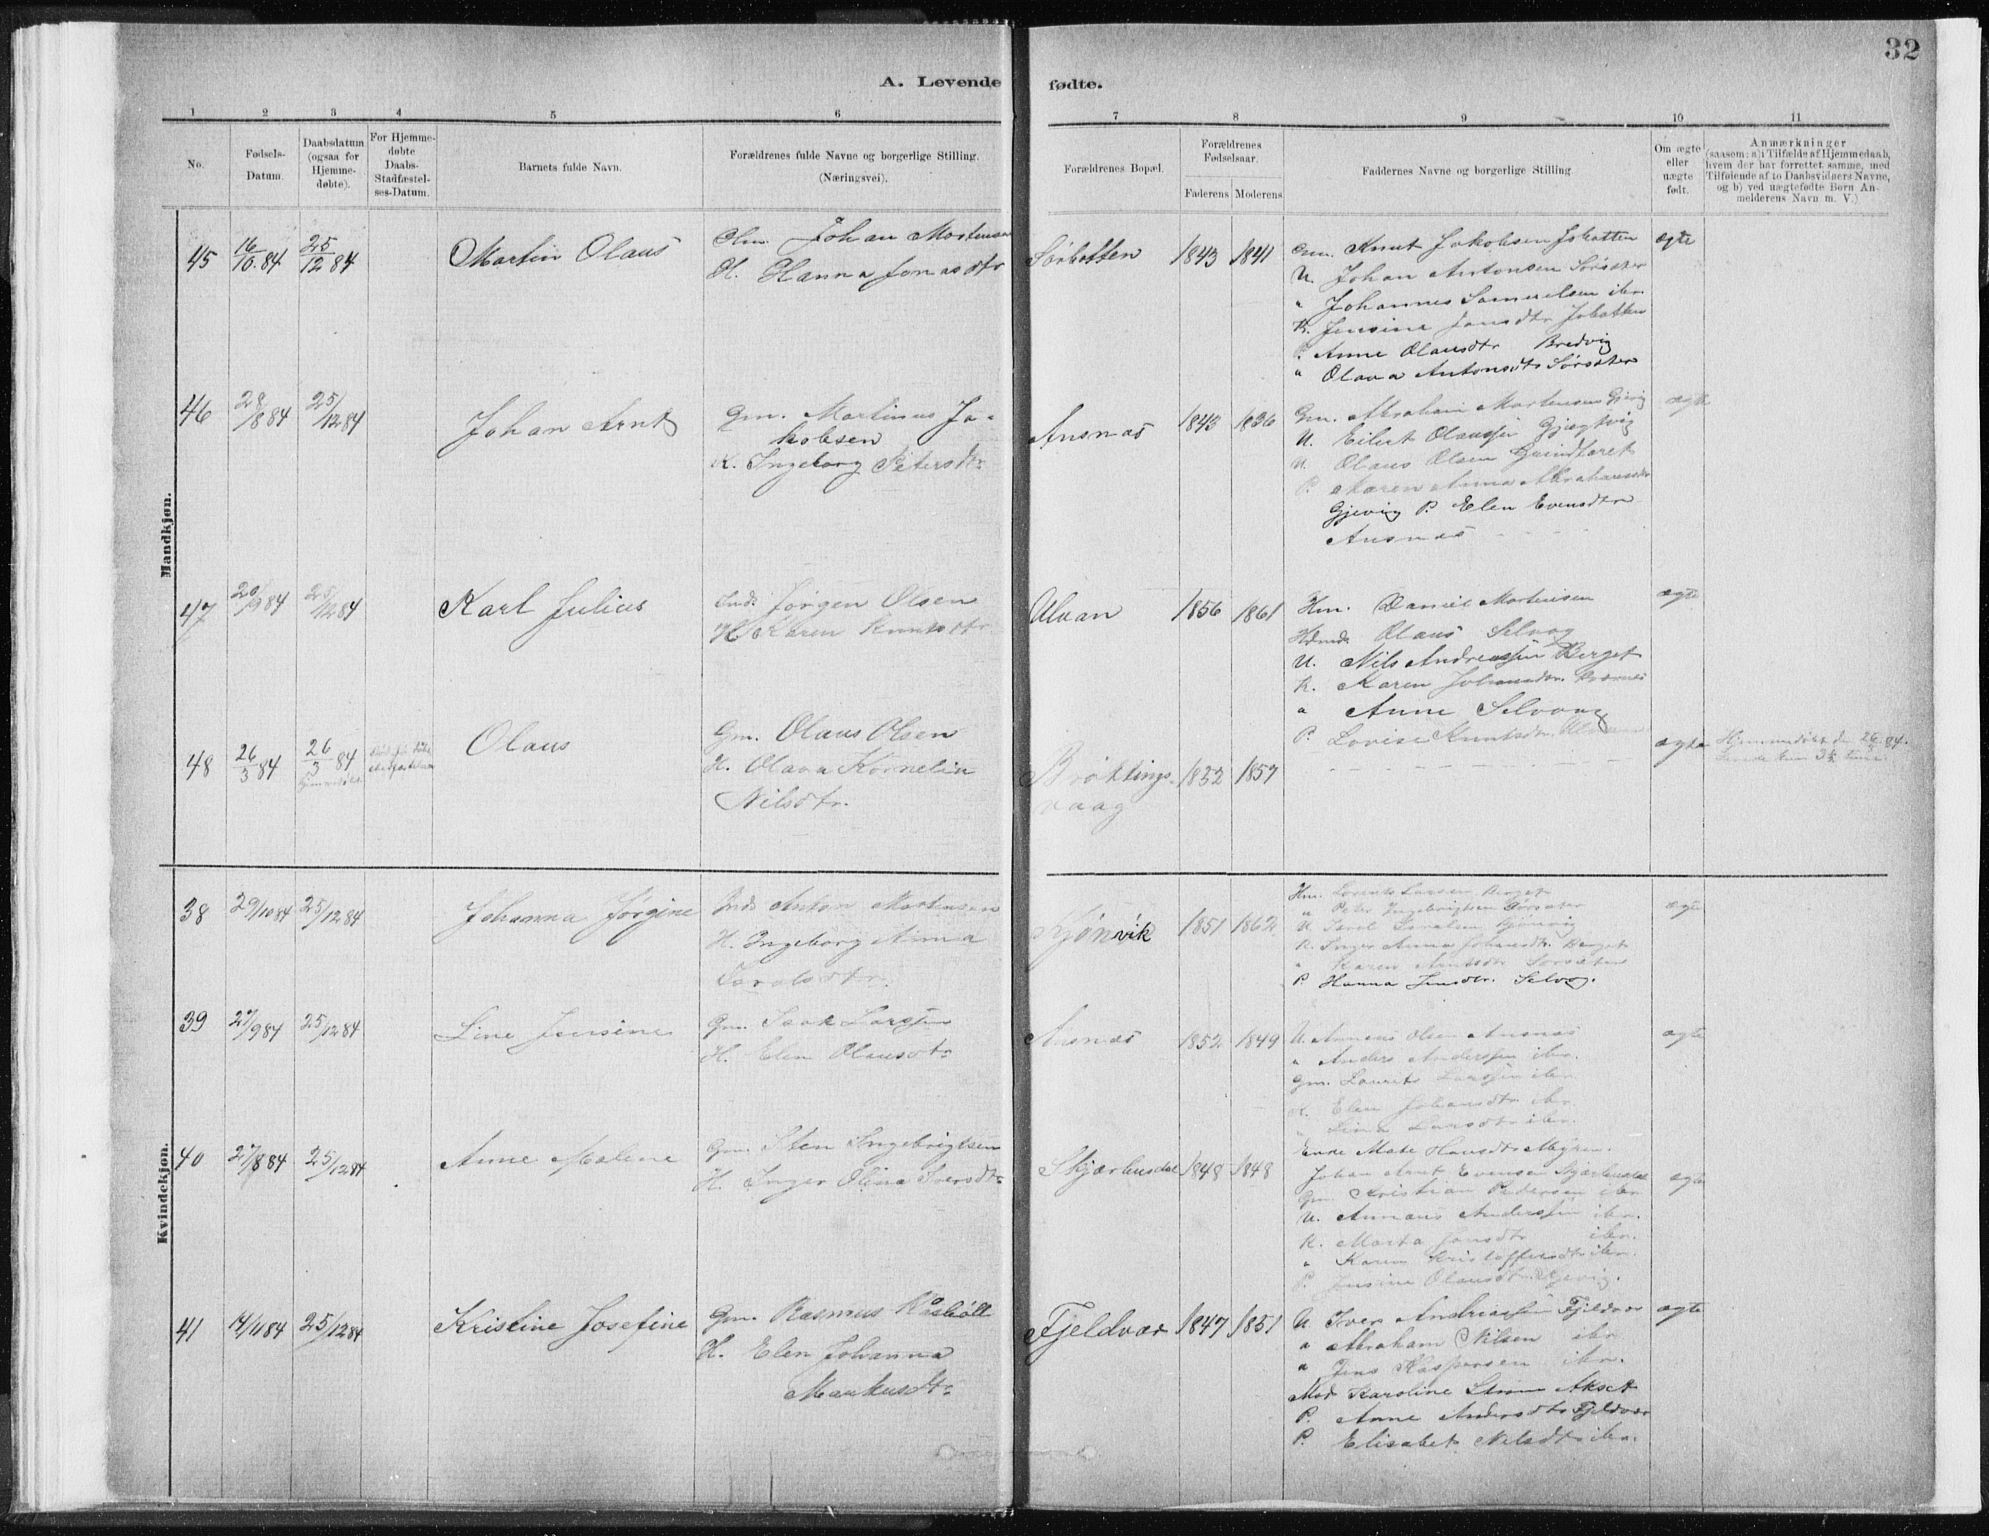 32
A. Levende fødte.
1 2 3 4 5 6 7 8 9 10 11
No.
Fødsels-
Datum.
Daabsdatum
(ogsaa for
Hjemme-
døbte).
For Hjemme-
døbte
Daabs-
Stadfæstel-
ses-Datum.
Barnets fulde Navn.
Forældrenes fulde Navne og borgerlige Stilling.
(Næringsvei).
Forældrenes Bopæl.
Forældrenes
Fødselsaar.
Faderens Moderens
Faddernes Navne og borgerlige Stilling
Om ægte
eller
uægte
født.
Anmærkninger
(saasom: a) i Tilfælde af Hjemmedaab,
hvem der har forrettet samme, med
Tilføiende af to Daabsvidners Navne,
og b) ved uægtefødte Børn An-
melderens Navn m. V.)
Mandkjøn.
45 16/10 84 25/12 84 Martin Olaus
Johan Mortensen
H. Hanna Jonasdtr
Sørbotten 1843 1841
Knut Jakobsen
U. Johan Antonsen Sørsæter
" Johannes Samuelsen ibr.
K. Jensine Jonsdtr
P. Anne Olausdtr Bredvig
" Olava Antonsdtr Sørsæter
ægte
46 28/8 84 25/12 84 Johan Arnt
Gm. Martinus Ja-
kobsen
K. Ingeborg Petersdtr
Ansnæs 1843 1836
Gm. Abraham Mortensen Gjevig
U. Eilert Olaussen
U. Olaus Olsen
P. Maren Anna Abrahamsdtr
Gjevig P. Elen Evensdtr
Ansnæs
ægte
47 20/9 84 25/12 84 Karl Julius
Inds. Jørgen Olsen
H. Karen Knutsdtr
Ulvan 1856 1861
Hm. Daniel Mortensen
Olaus Selvaag
U. Nils Andreassen Berget
K. Karen Johansdtr.
" Anne Selvaag
P. Lovise Knutsdtr. Ulvan
ægte
48 26/3 84 26/3 84 Olaus
Gm. Olaus Olsen
H. Olava Kornelia
Nilsdtr.
Brøttings-
vaag
1832 1857
ægte
Hjemmedøbt den 26/3 84.
Kvindekjøn.
38 29/10 84 25/12 84 Johanna Jørgine
Inds Anton Mortensen
H. Ingeborg Anna
Taralsdtr.
Gjønvik 1851 1862
Hm. Lorents Larsen Berget
" Peter Ingebrigtsen Sørsæter
U. Tarol
K. Inger Anna Johansdtr. Berget
" Karen Arntsdtr Sørsæter
P. Hanna Jensdtr. Selvag.
ægte
39 27/9 84 25/12 84 Line Jensine
Gm. Isak Larssen
H. Elen Olausdtr
Ansnæs 1852 1849
U. Annæus Olsen Ansnæs
" Anders Anderssen ibr.
Gm. Laurits Larssen ibr
K. Elen Johansdtr ibr
" Lina Larsdtr ibr.
ægte
40 27/8 84 25/12 84 Anne Malene
Gm. Sten Ingebrigtsen
H. Inger Olina Iversdtr
Skjærbusdal 1848 1848
Enke Mate Hansdtr
Johan Arnt Evensen Skjærbusdal
Gm. Kristian Pedersen ibr
U. Annæus Anderssen ibr.
K. Marta Jonsdtr ibr.
" Karen Kristoffersdtr ibr.
P. Jensine Olausdtr. Gjevig.
ægte
41 14/11 84 25/12 84 Kristine Josefine
Gm. Rasmus
H. Elen Johanna
Markusdtr
Fjeldvær 1847 1851
U. Iver Andreassen Fjeldvær
" Abraham Nilsen ibr
" Jens Kaspersen ibr.
Mad. Karoline Strøm Akset
P. Anne Andersdtr Fjeldvær
P. Elisabet Nilsdtr ibr.
ægte